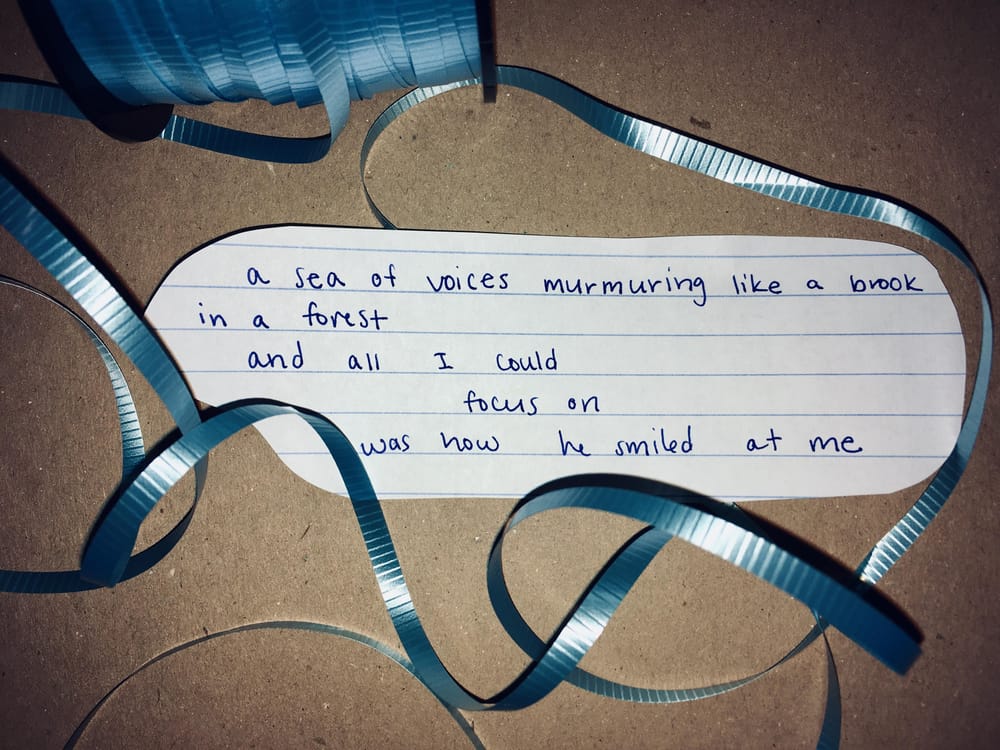 a sea of voices murmuring like a brook
in a forest
and all I could
focus on
was how he smiled at me